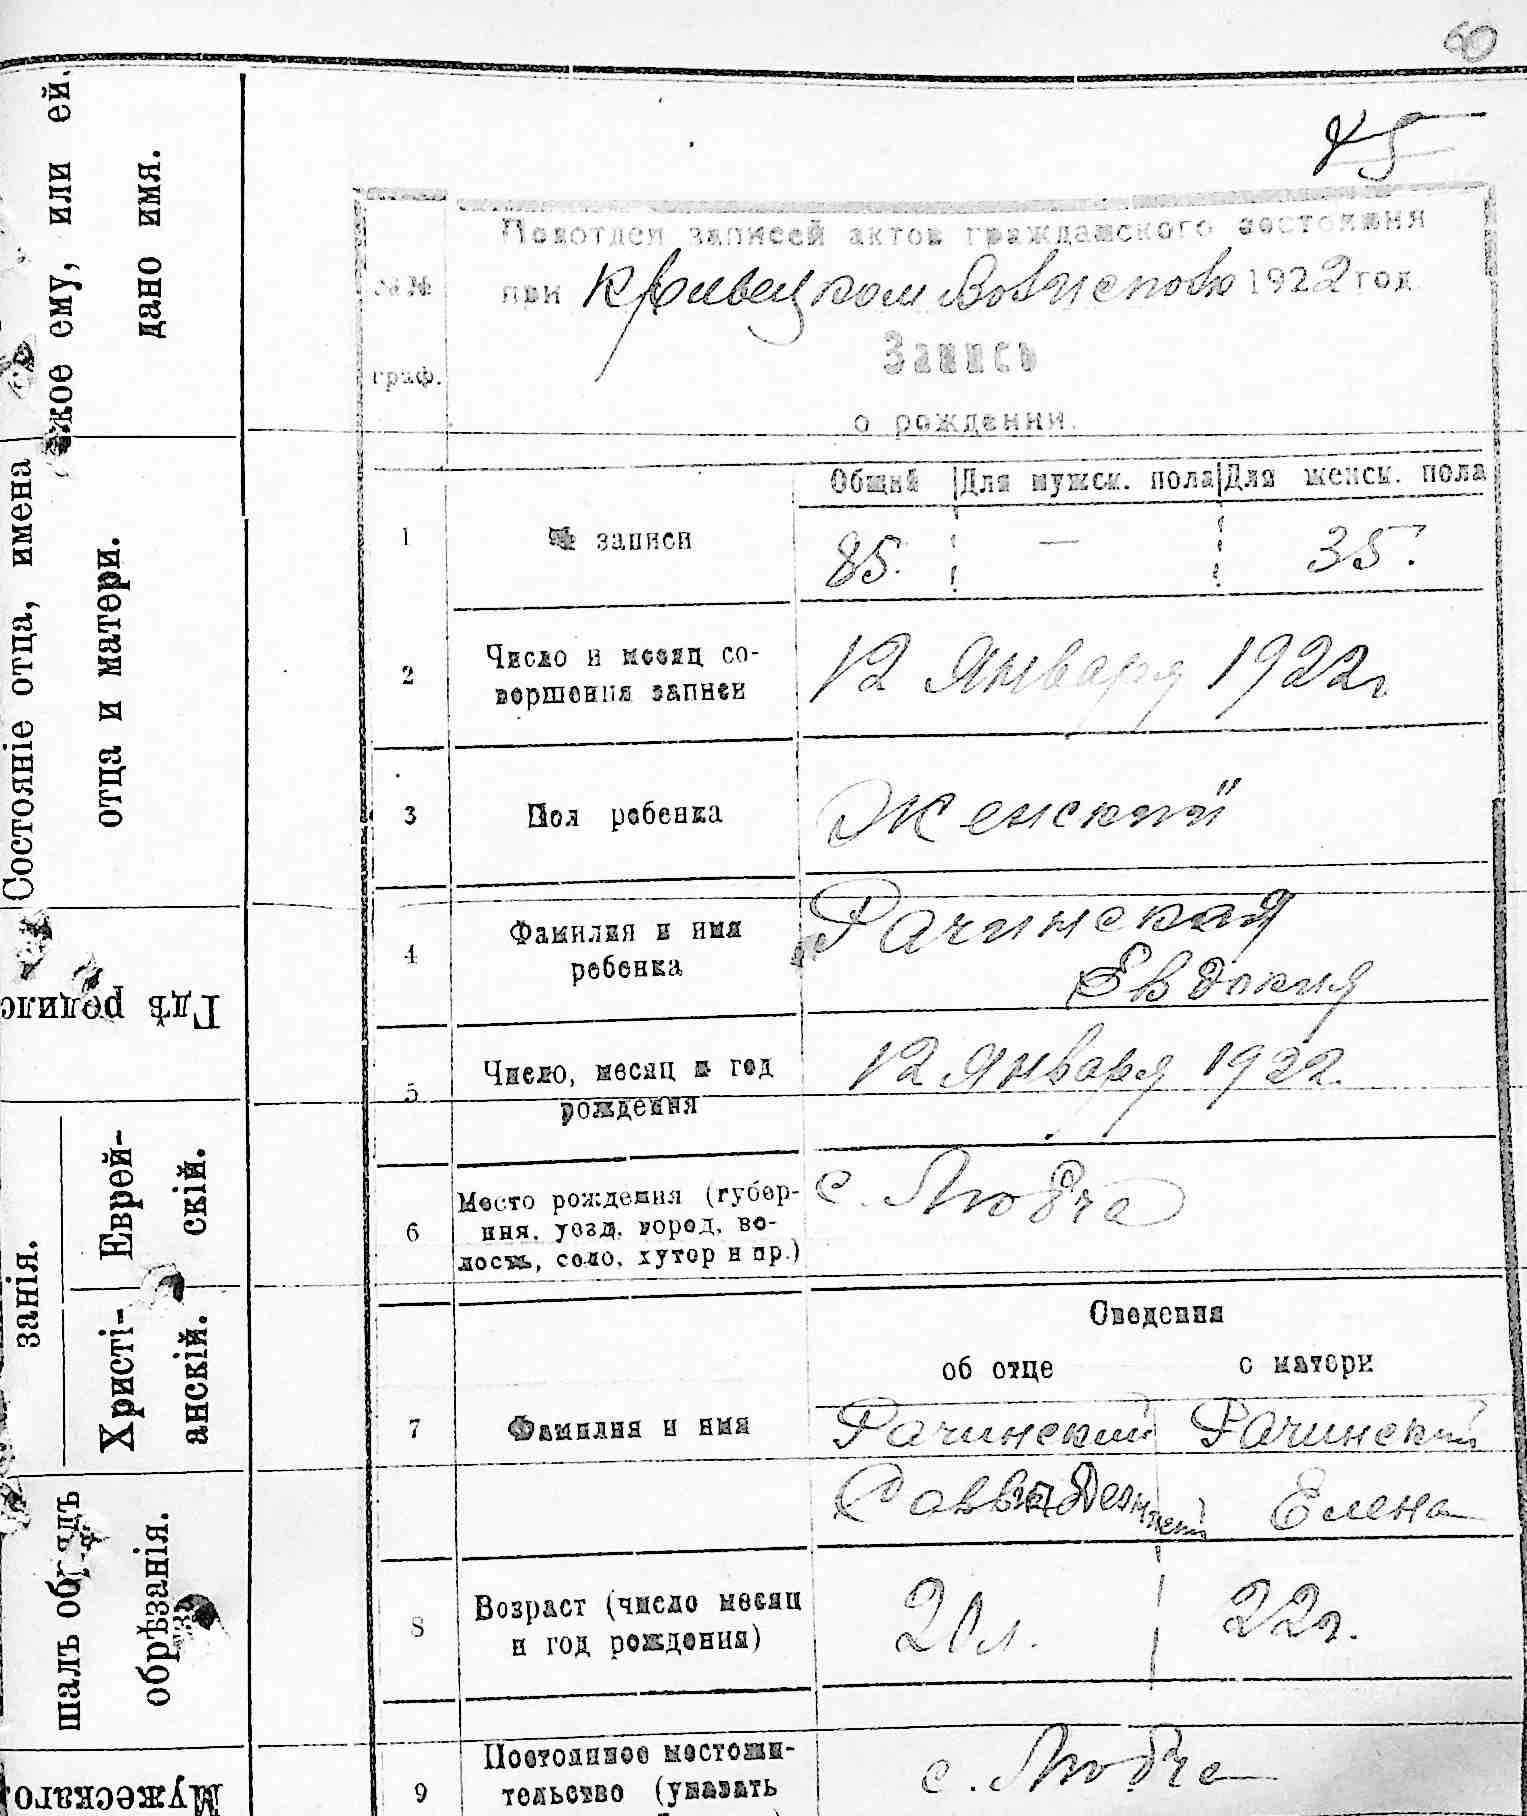 60
85
кое ему, или ей.
дано имя.
Состояніе отца, имена
отца и матери.
Гдѣ родилс
занія.
Еврей-
скій.
Христі-
анскій.
шалъ обрядъ
обрѣзанія.
Мужескаго
№№
граф.
Подотдел записей актов гражданского состояния
при 1922 год
Запись
о рождении.
Общий Для мужск. пола Для женск. пола
1 № записи 85. — 35.
2 Число и месяц со-
вершения записи
12 Января 1922г
3 Пол ребенка Женский
4 Фамилия и имя
ребенка
Рачинская
Евдокия
5 Число, месяц и год
рождения
12 января 1922.
6 Место рождения (губер-
ния, уезд, город, во-
лость, село, хутор и пр.)
с. Любча
Сведения
об отце о матери
7 Фамилия и имя Рачинский Рачинский
Савва Елена
8 Возраст (число месяц
и год рождения)
20л. 22г.
9 Постоянное местожи-
тельство (указать
с. Любче